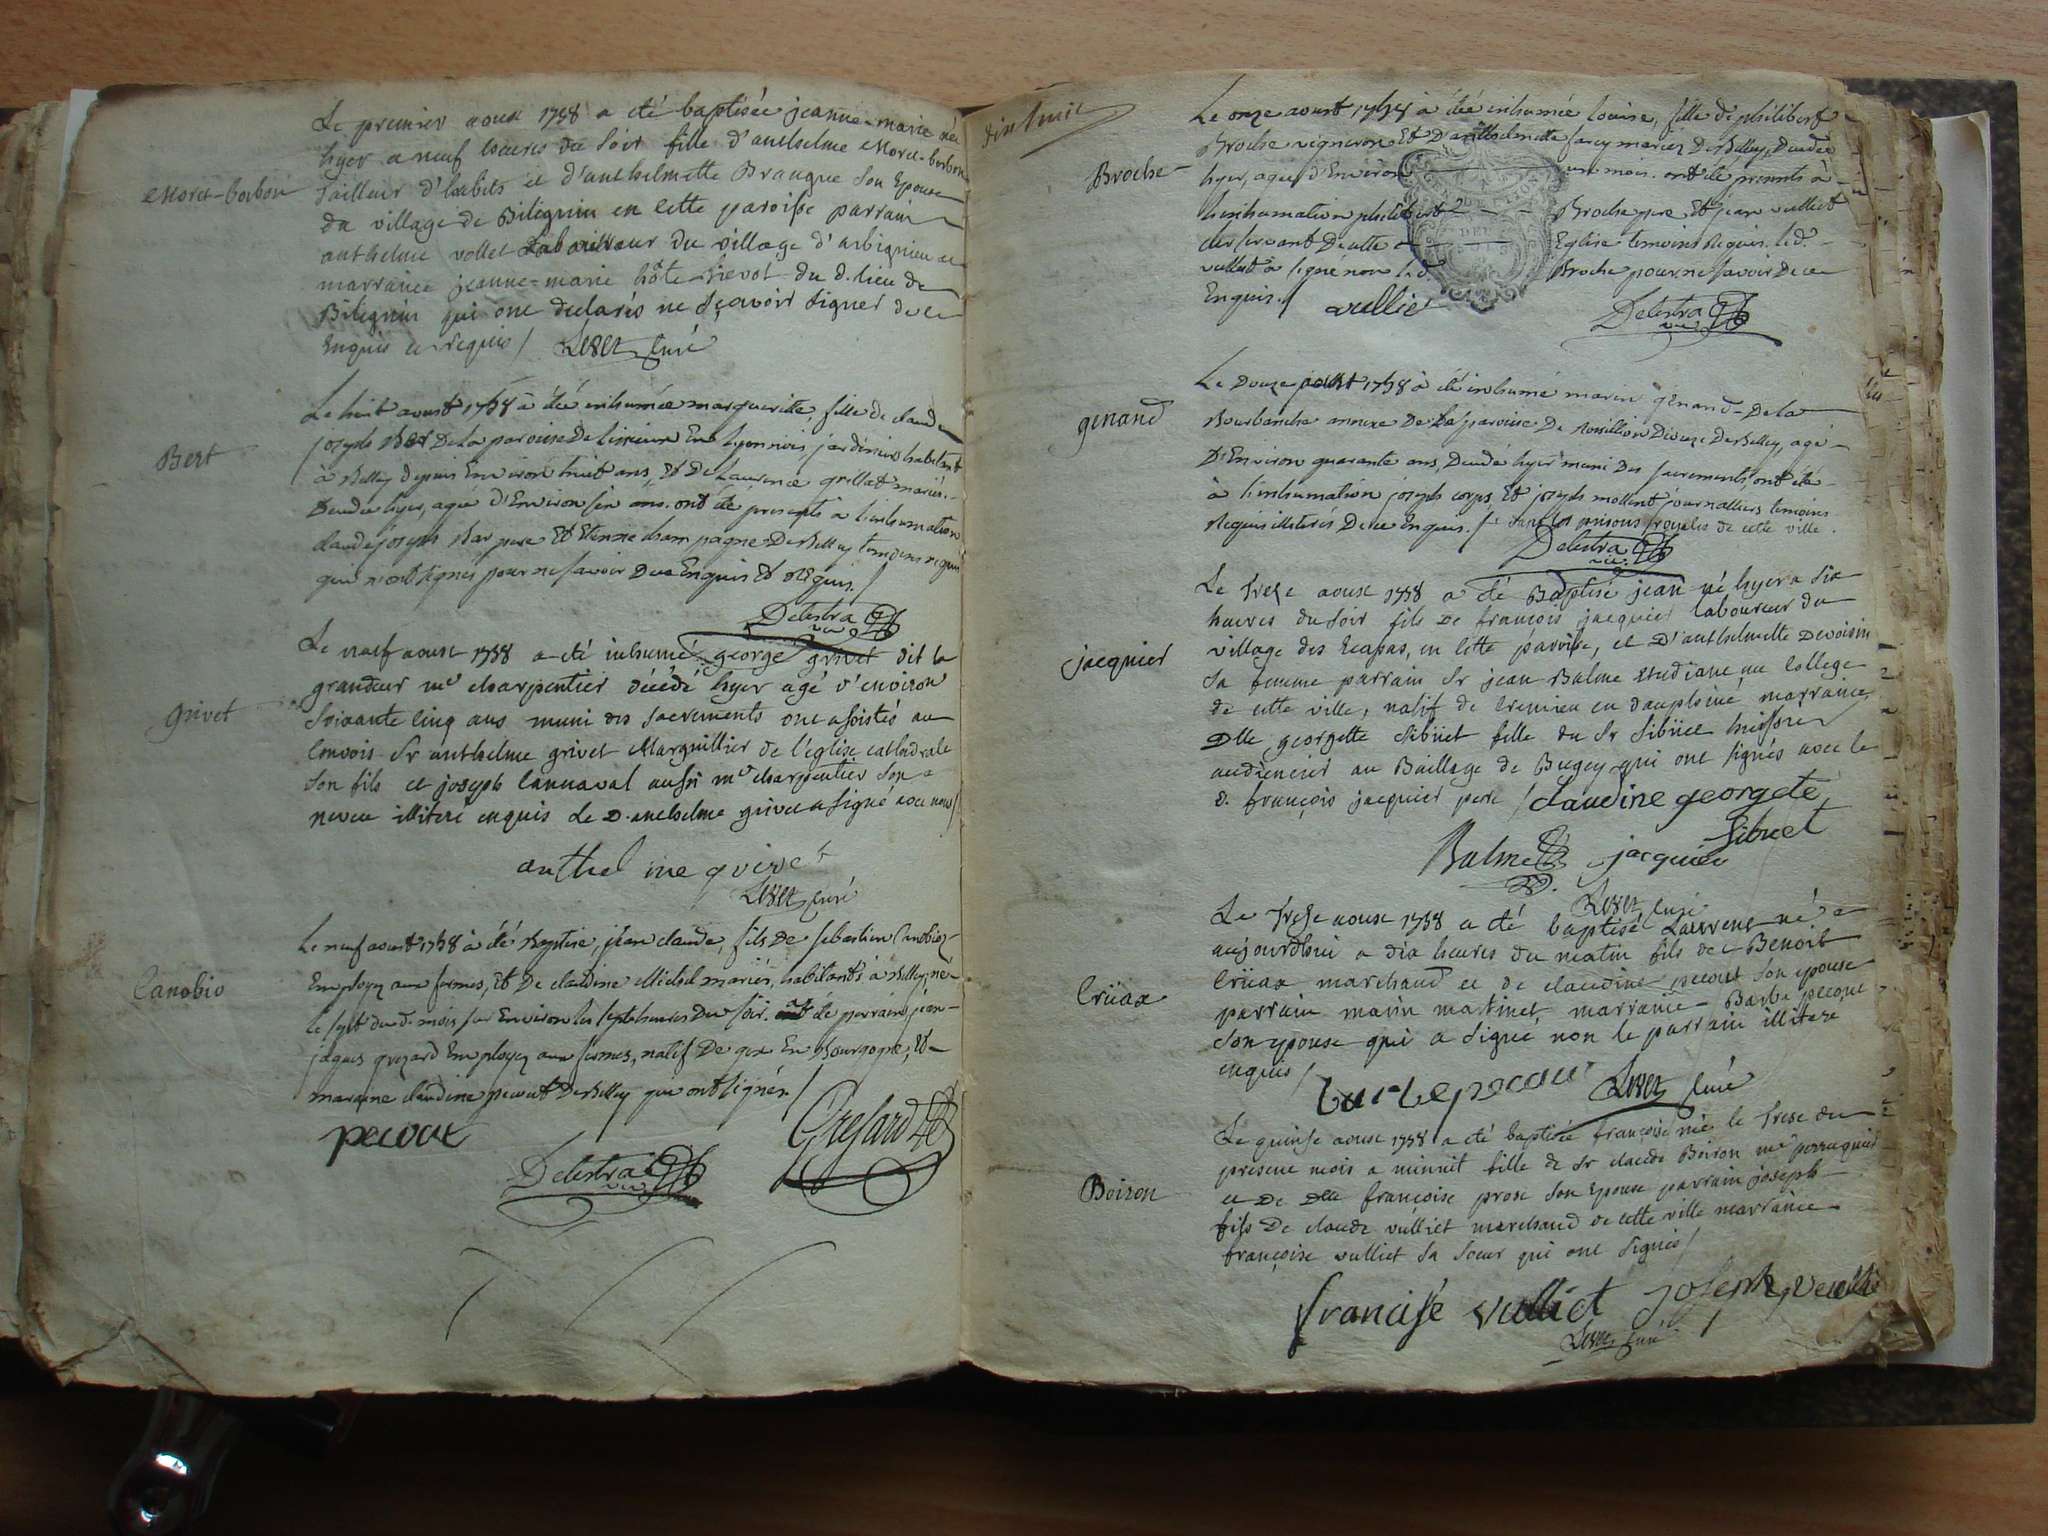 Moret-borbon
Le premier aoust 1758 a été baptisée jeanne-marie née
hyer a neuf heures du soir fille d'anthelme Moret-borbon
tailleur d'habits et d'anthelmette Braugue son Epouse
du village de Bilignin en cette paroisse parrain
anthelme vollet Laboureur du village d'arbignieu et
marrainee jeanne-marie hôte-Fievot du d. lieu de
Bilignin qui ont declarés ne sçavoir signer de ce
enquis et requis / curé
Bert
Le huit aoust 1758 à été inhumée margueritte, fille de claude
joseph Bert De la paroisse De En Lyonnois, jardinier habitant
à Belley depuis Environ huit ans, Et De Laurence grillat mariés.
Decedée hyer, agée d'Environ six ans. ont été presents à l'inhumation
claude joseph pere Et Etienne champagne De Belley temoins requis
qui n'ont signés pour ne savoir De ce Enquis Et Requis /
Delestra vic
grivet
Le neuf aoust 1758 a été inhumé george grivet dit la
grandeur me charpentier décédé hyer agé d'environ
soixante cinq ans muni des sacrements ont assistés au
convois Sr anthelme grivet Marguillier de l'église cathedrale
son fils et joseph cannaval aussi me charpentier son
neveu illiteré enquis Le D. anthelme grivet a signé avec nous /
anthelme grivet
curé
Canobio
Le neuf aoust 1758 à été Baptisé, jean claude, fils De sebastien Canobio
Employez aux fermes, Et De claudine Michel mariés, habitants à Belley, né
le sept du d. mois sur Environ les sept heures Du soir. a été le parrain jean-
jaques grezard Employez aux fermes, natif De gex En Bourgogne, Et
maraine claudine pecout De Belley qui ont signés. /
pecout
Gresard
Delestra vic
dix huit
Broche
Le onze aoust 1758 à été inhumée louise, fille de philibert
Broche vigneron Et D'anthelmette mariez De Belley, Decedée
hyer, agée d'Environ un mois. ont été presents à
l'inhumation philibert Broche pere Et jean vulliet
clerc servant De cette Eglise temoins Requis. led.
vulliet à signé non led Broche pour ne savoir De ce
Enquis. / vulliet
Delestra vic
genand
Le Douze aoust 1758 à été inhumé marin genand De la
Bourbanche annexe De la paroisse De Rossillion Diocese De Belley, agé
D'Environ quarante ans, Decedé hyer muni Des sacrements, ont été
à l'inhumation joseph corps Et joseph mollent journalliers temoins
Requis illiterés De ce Enquis. / dans les prisons royales de cette ville.
Delestra vic
jacquier
Le treze aoust 1758 a été Baptisé jean né hyer a six
heures du soir fils de françois jacquier laboureur du
village des Ecapas, en cette paroisse, et D'anthelmette Devoisin
sa femme parrain Sr jean Balme etudiant au College
de cette ville, natif de Cremieu en dauphiné marraine
Dlle georgette Sibuet fille du Sr Sibuet huissier
audiencier au Baillage de Bugey qui ont signés avec le
d. françois jacquier pere / claudine georgete
Sibuet
Balme jacquier
curé
Crüax
Le treze aoust 1758 a été baptisé Laurent né
aujourdhui a dix heures du matin fils de Benoit
Crüax marchand et de claudine pecout son epouse
parrain marin martinet marraine Barbe pecout
son epouse qui a signé non le parrain illiteré
enquis /
barbe pecout curé
Boiron
Le quinse aoust 1758 a été baptisée françoise née le trese du
present mois a minuit fille de Sr claude Boiron me perruquier
et De Dlle françoise prost son Epouse parrain joseph
fils De claude vulliet marchand de cette ville marraine
françoise vulliet sa soeur qui ont signés /
francise vulliet joseph vulliet
curé